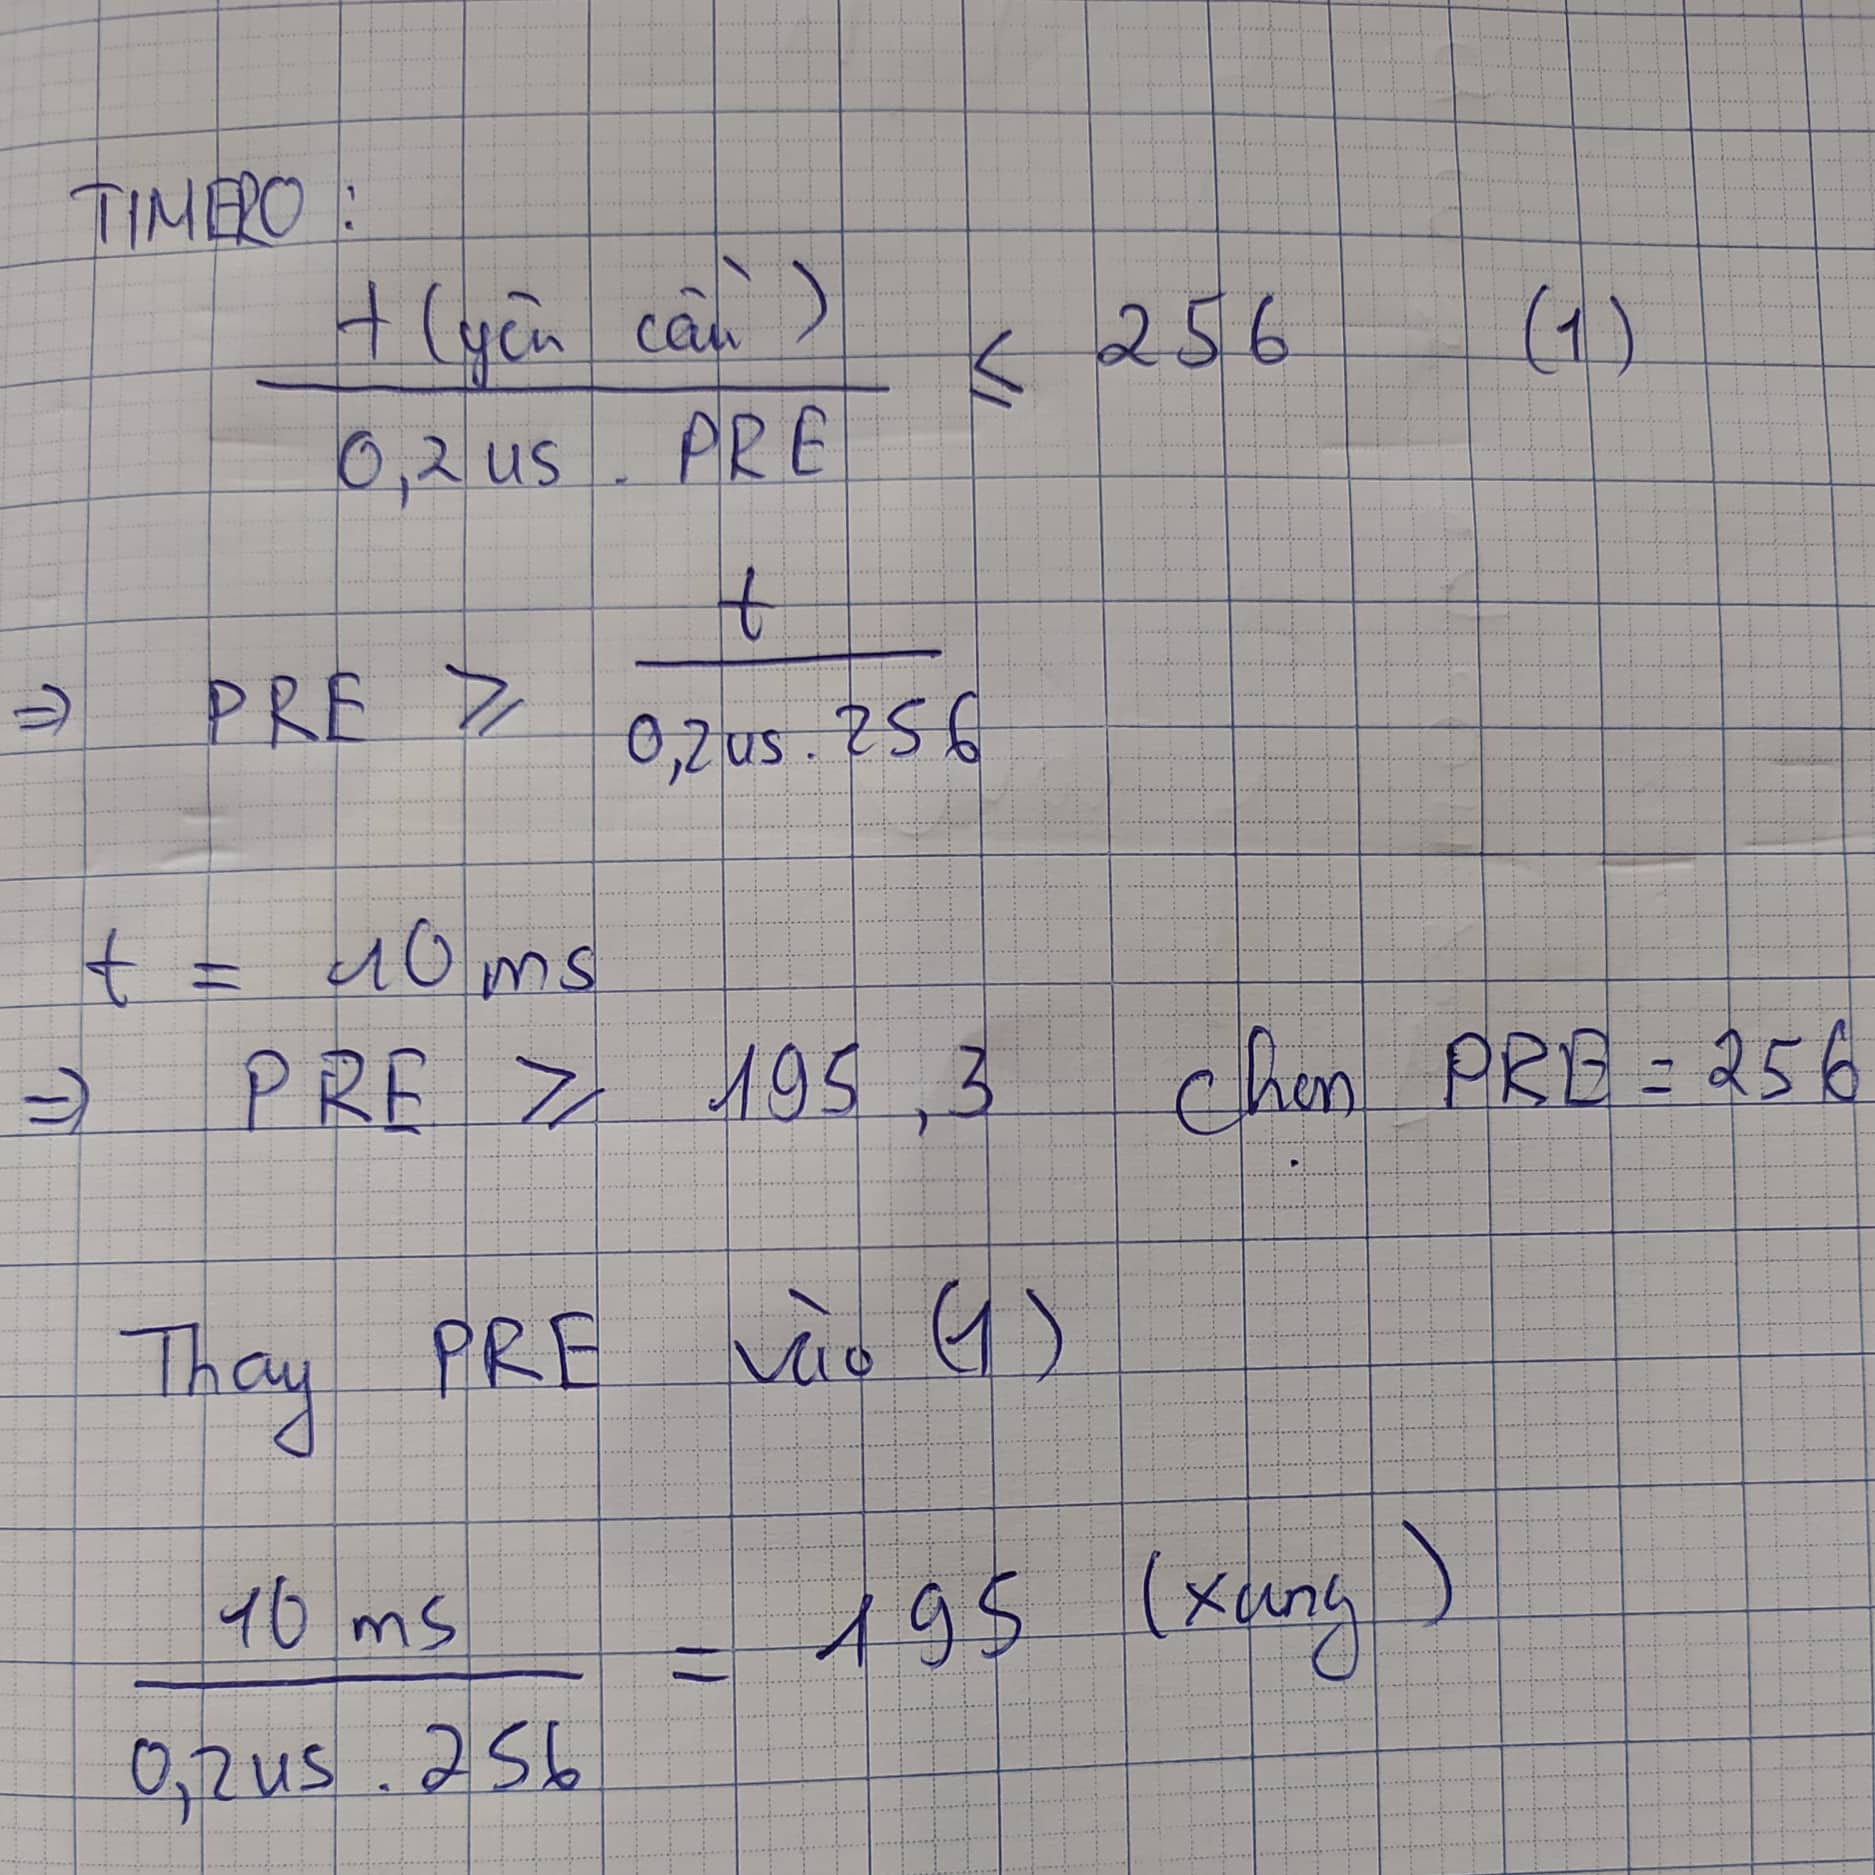 TIMER0 :
t (yêu cầu) / 0,2us . PRE ≤ 256 (1)
⇒ PRE ≥ t / 0,2us . 256
t = 10 ms
⇒ PRE ≥ 195,3 chọn PRE = 256
Thay PRE vào (1)
10 ms / 0,2us . 256 = 195 (xung)